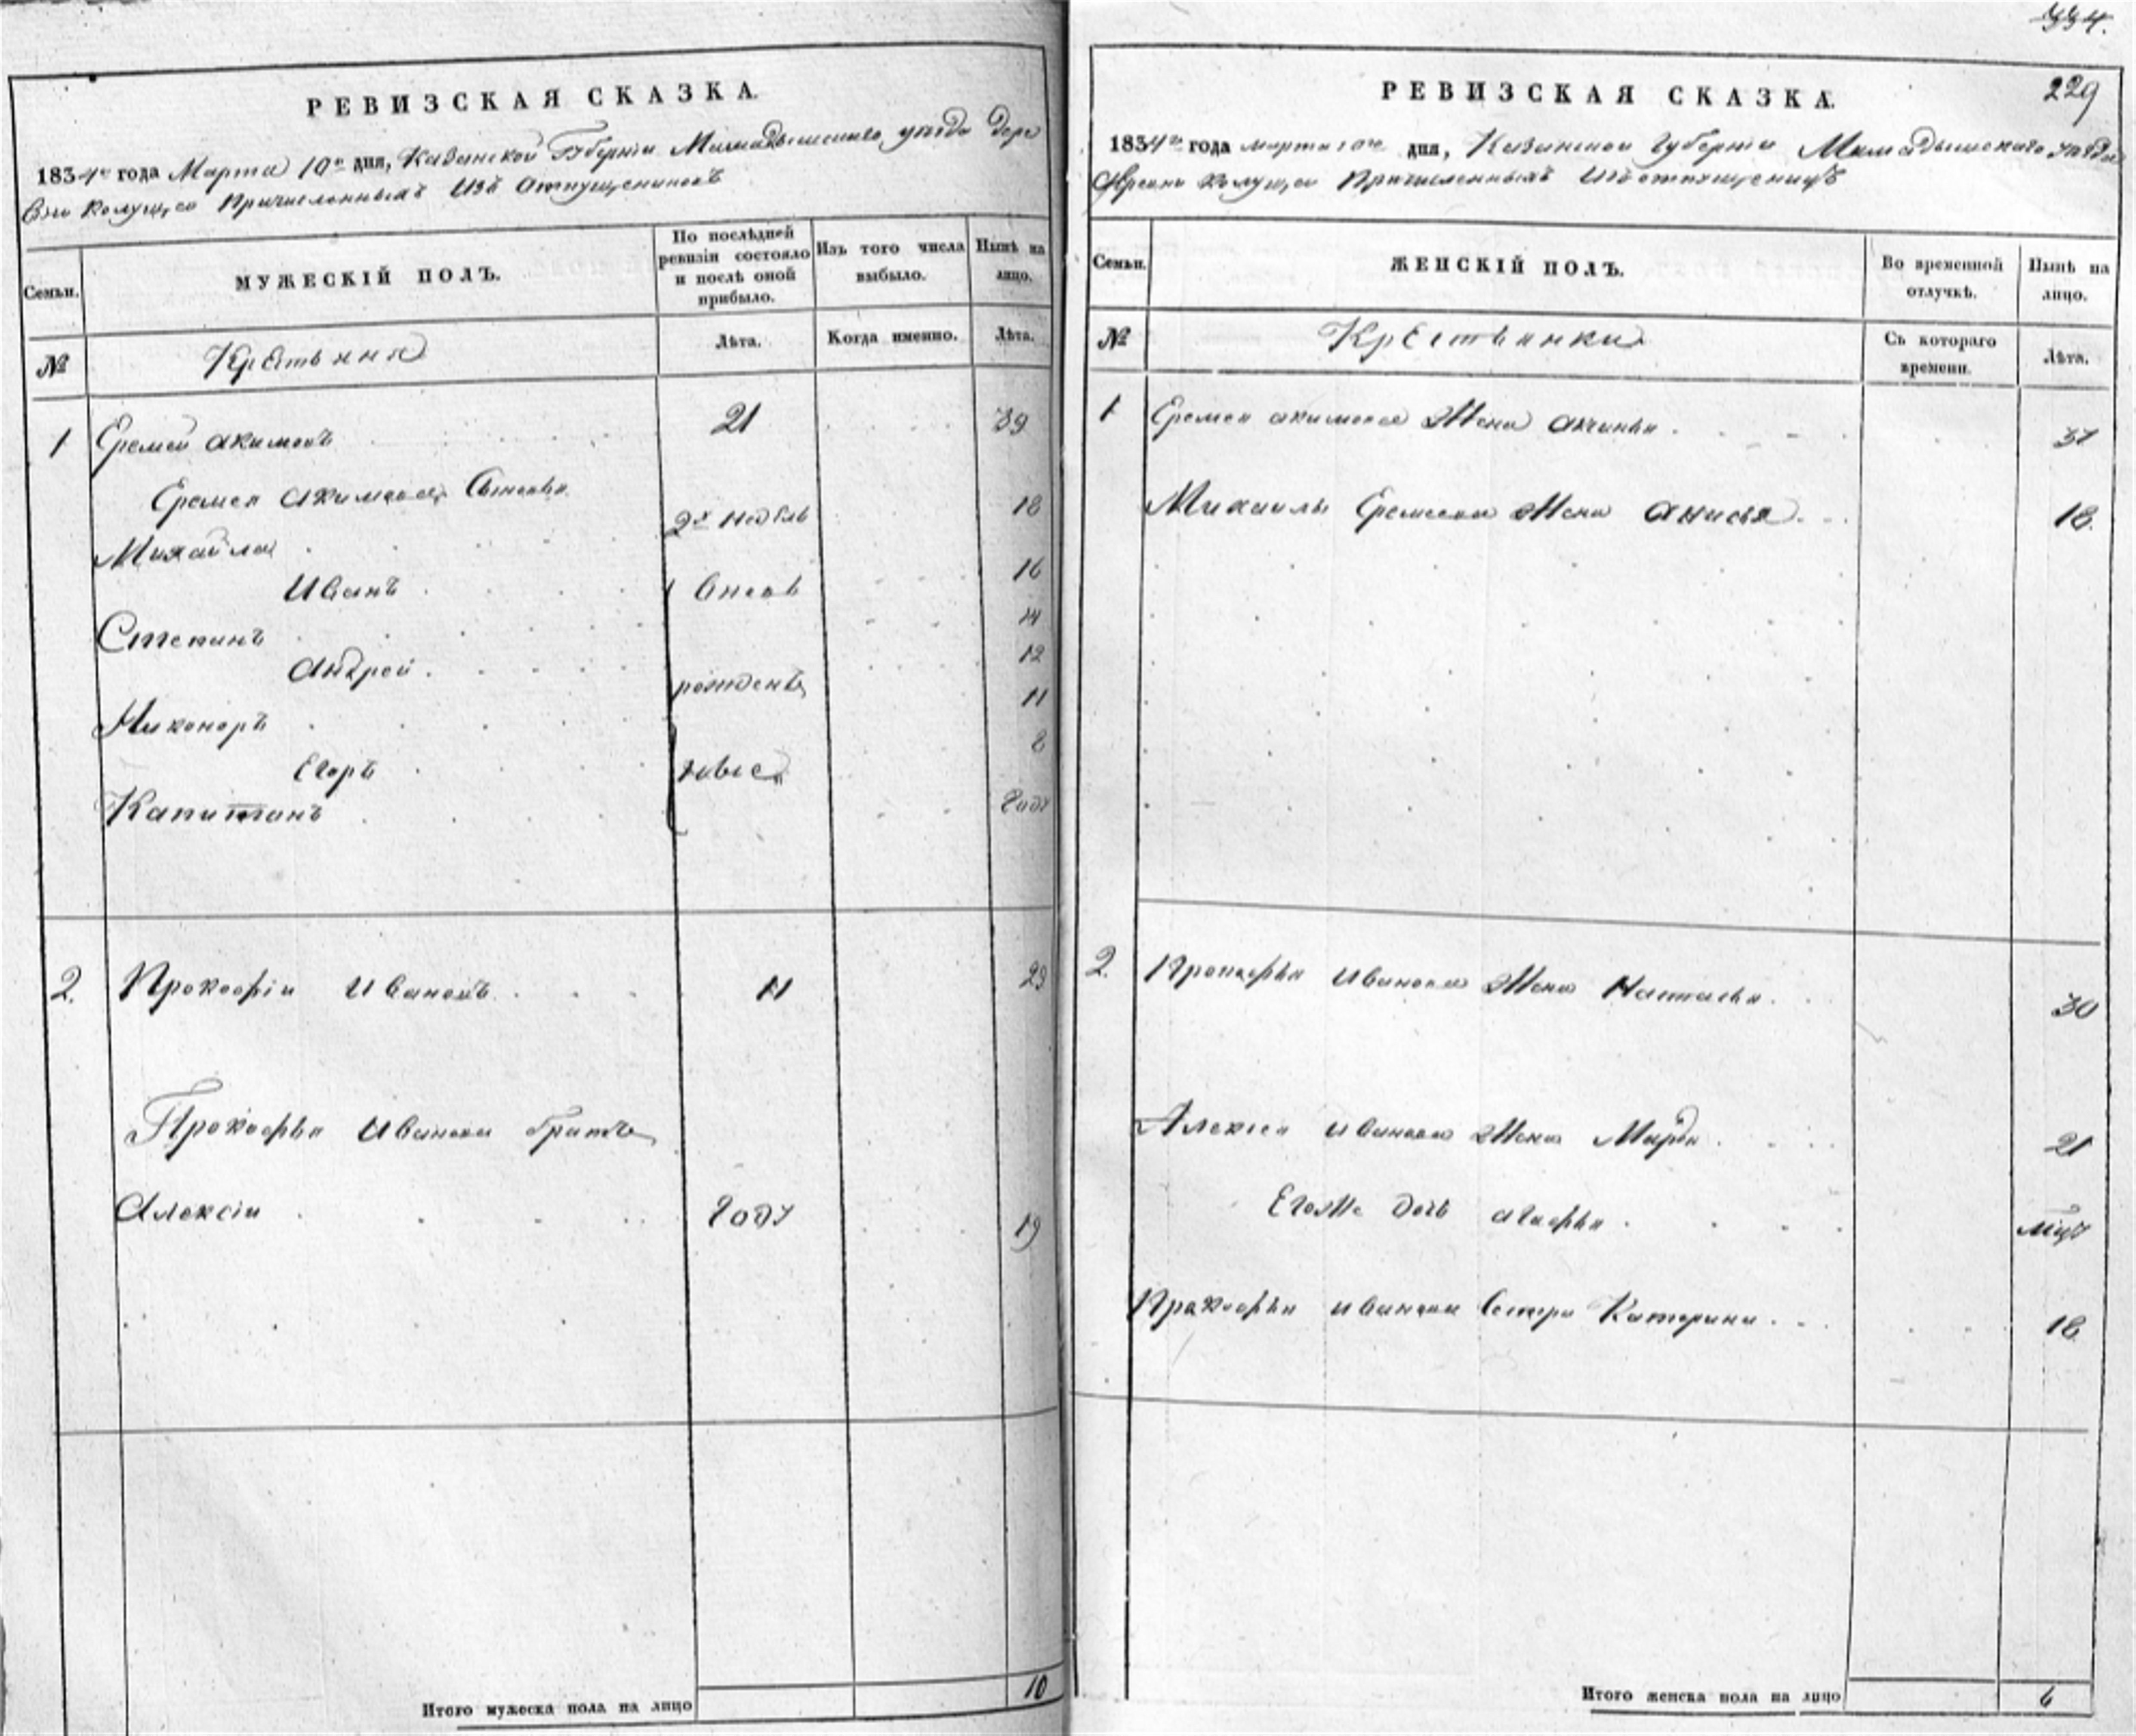 РЕВИЗСКАЯ СКАЗКА.
1834го года Марта 10го дня, Казанской Губернiи Мамадышскаго уѣзда дере
вни Колущса Причисленныхъ Изъ отпущениковъ
Семьи.
МУЖЕСКIЙ ПОЛЪ.
По послѣдней ревизiи состояло и послѣ оной прибыло.
Изъ того числа выбыло.
Нынѣ на лицо.
№
Крестьяня
Лѣта.
Когда именно.
Лѣта.
1 Еремей Акимовъ 21 39
Еремея Акимова Сыновья
Михайла 2х недѣль 18
Иванъ вновь 16
Степанъ 14
Андрей рожденъ 12
Никоноръ 11
Егоръ 8
Капитонъ году
2. Прокофiй Ивановъ 11 29
Прокофья Иванова братъ
Алексiй году 19
Итого мужеска пола на лицо 10
334.
229
РЕВИЗСКАЯ СКАЗКА.
1834го года марта 10го дня, Казанской Губернiи Мамадышскаго уѣзда
Деревни Колущса Причисленныхъ Изъ отпущеницъ
Семьи.
ЖЕНСКIЙ ПОЛЪ.
Во временной отлучкѣ.
Нынѣ на лицо.
№
Крестьянки
Съ котораго времени.
Лѣта.
1 Еремея акимова Жена 37
Михайлы Еремеева Жена Анисья 18.
2. Прокофья Иванова Жена Настасья 30
Алексея Иванова Жена Марья 21
Егоже дочь Агафья мцъ
Прокофья иванова Сестра Катерина 18
Итого женска пола на лицо 6